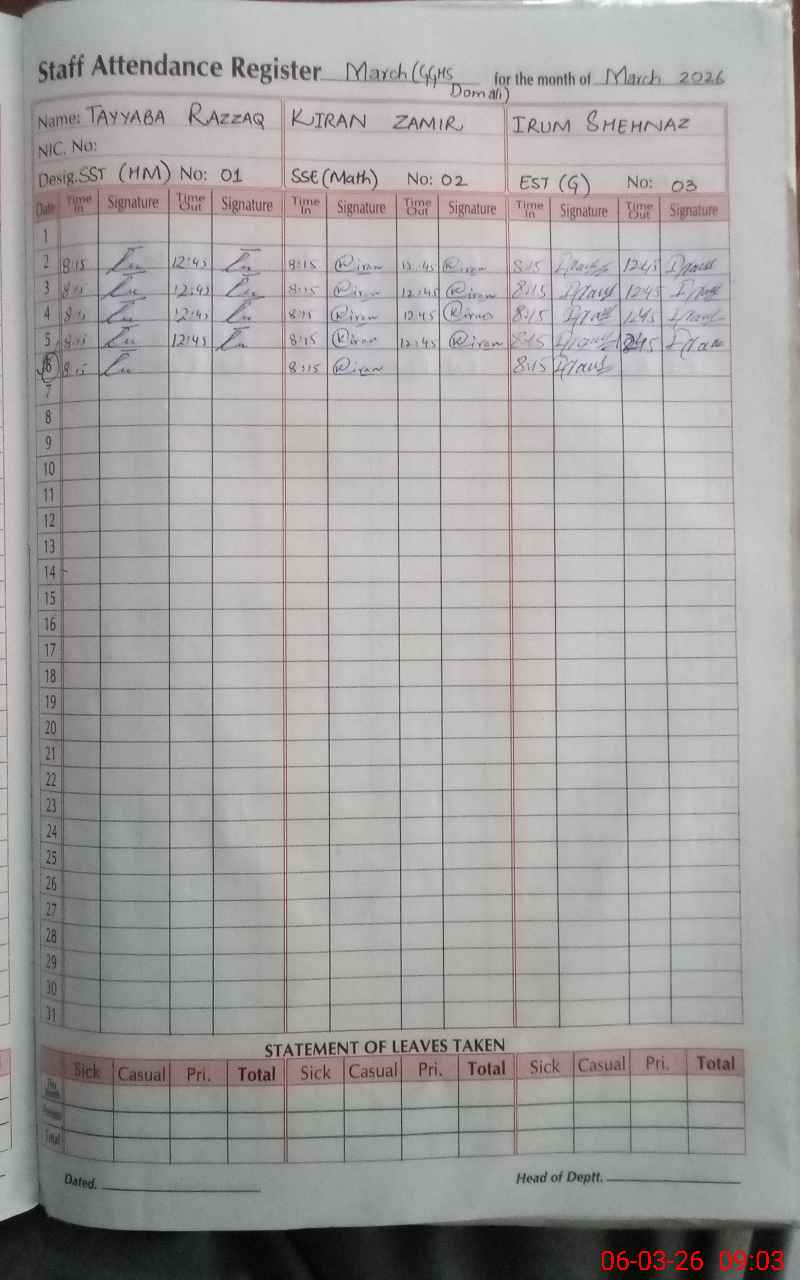 Staff Attendance Register March (GGHS Domali) for the month of March 2026
Name: TAYYABA RAZZAQ KIRAN ZAMIR IRUM SHEHNAZ
NIC. No:
Desig. SST (HM) No: 01 SSE (Math) No: 02 EST (G) No: 03
Date Time In Signature Time Out Signature Time In Signature Time Out Signature Time In Signature Time Out Signature
1
2 8:15 12:45 8:15 Kiran 12:45 Kiran 8:15 12:45
3 8:15 12:45 8:15 Kiran 12:45 Kiran 8:15 12:45
4 8:15 12:45 8:15 Kiran 12:45 Kiran 8:15 12:45
5 8:15 12:45 8:15 Kiran 12:45 Kiran 8:15 12:45
6 8:15 8:15 Kiran 8:15
7
8
9
10
11
12
13
14
15
16
17
18
19
20
21
22
23
24
25
26
27
28
29
30
31
STATEMENT OF LEAVES TAKEN
Sick Casual Pri. Total Sick Casual Pri. Total Sick Casual Pri. Total
Total
Dated. Head of Deptt.
06-03-26 09:03